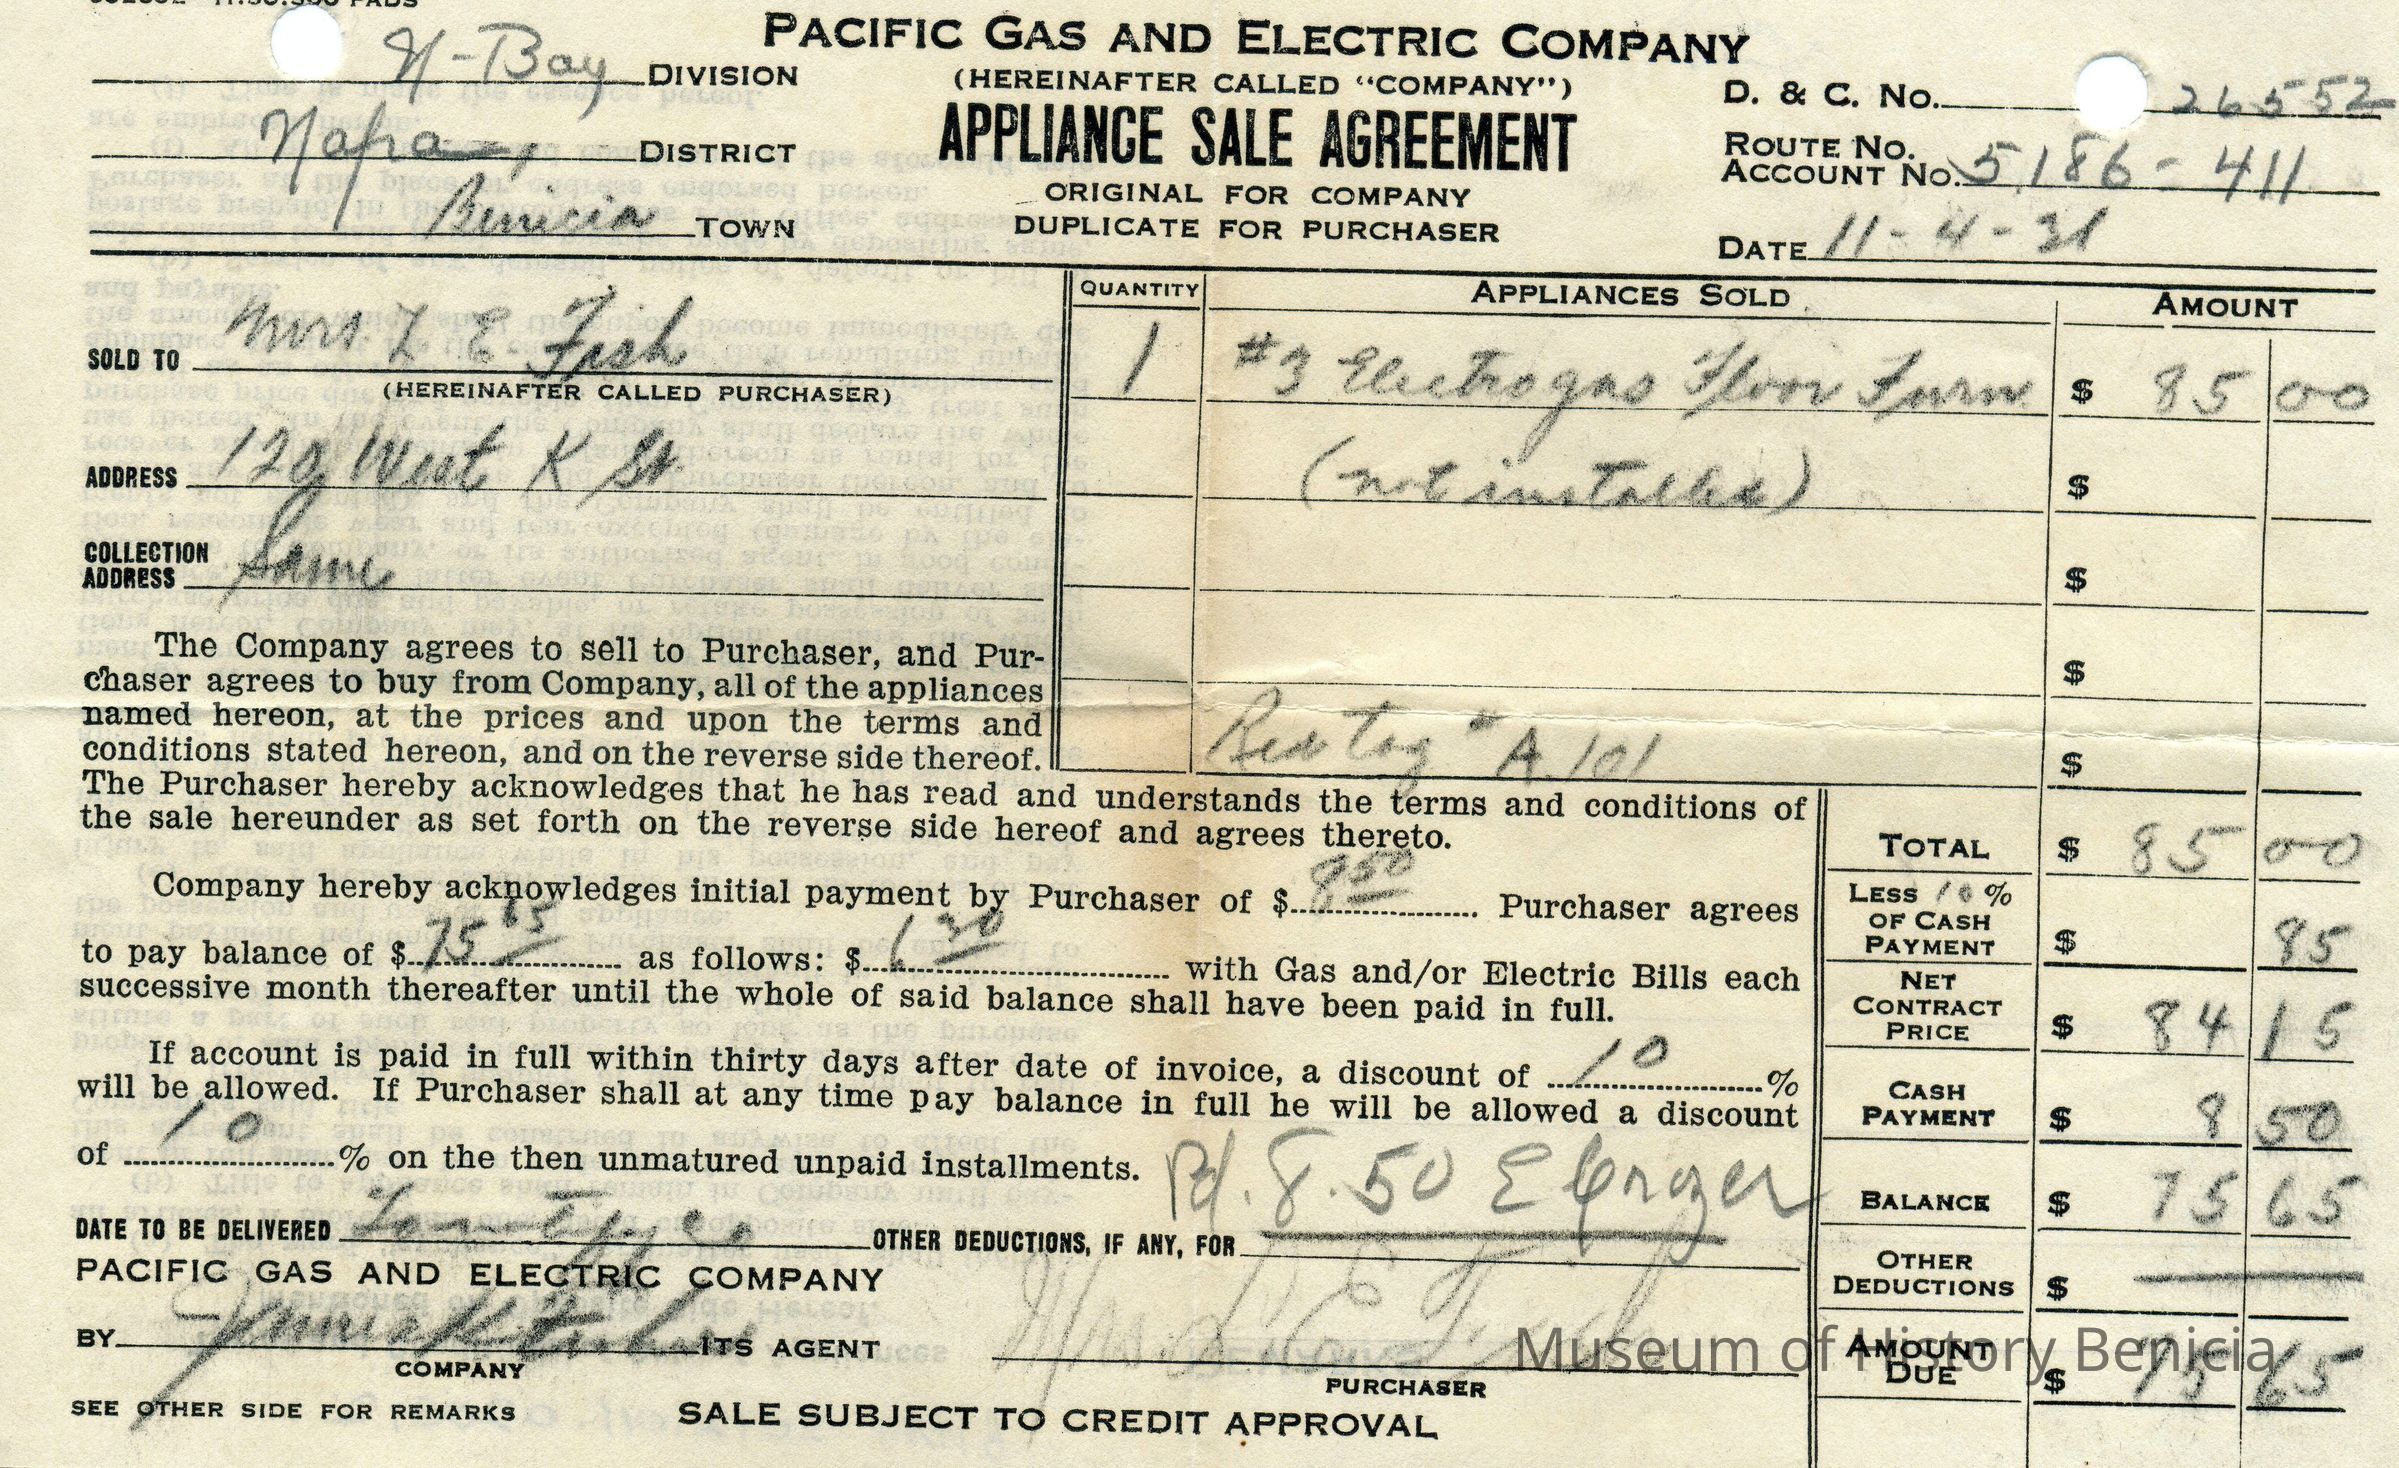 PADS
N-Bay DIVISION
Napa, DISTRICT
Benicia TOWN
PACIFIC GAS AND ELECTRIC COMPANY
(HEREINAFTER CALLED "COMPANY")
APPLIANCE SALE AGREEMENT
ORIGINAL FOR COMPANY
DUPLICATE FOR PURCHASER
D. & C. No. 26552
ROUTE NO.
ACCOUNT NO. 5186-411
DATE 11-4-31
SOLD TO Mrs L E. Fish
(HEREINAFTER CALLED PURCHASER)
ADDRESS 129 West K St.
COLLECTION
ADDRESS Same
QUANTITY APPLIANCES SOLD AMOUNT
1 #3 Electrogas Floor Furn $ 85 00
(not installed) $
$
$
Red tag # A 101 $
The Company agrees to sell to Purchaser, and Pur-
chaser agrees to buy from Company, all of the appliances
named hereon, at the prices and upon the terms and
conditions stated hereon, and on the reverse side thereof.
The Purchaser hereby acknowledges that he has read and understands the terms and conditions of
the sale hereunder as set forth on the reverse side hereof and agrees thereto.
Company hereby acknowledges initial payment by Purchaser of $ 8 50 Purchaser agrees
to pay balance of $ 75 65 as follows: $ with Gas and/or Electric Bills each
successive month thereafter until the whole of said balance shall have been paid in full.
If account is paid in full within thirty days after date of invoice, a discount of 10 %
will be allowed. If Purchaser shall at any time pay balance in full he will be allowed a discount
of 10 % on the then unmatured unpaid installments.
Pd. 8.50
DATE TO BE DELIVERED OTHER DEDUCTIONS, IF ANY, FOR
PACIFIC GAS AND ELECTRIC COMPANY
BY ITS AGENT
COMPANY
Mrs L E Fish
PURCHASER
SEE OTHER SIDE FOR REMARKS
SALE SUBJECT TO CREDIT APPROVAL
TOTAL $ 85 00
LESS 10 %
OF CASH
PAYMENT $ 85
NET
CONTRACT
PRICE $ 84 15
CASH
PAYMENT $ 8 50
BALANCE $ 75 65
OTHER
DEDUCTIONS $
AMOUNT
DUE $ 75 65
Museum of History Benicia